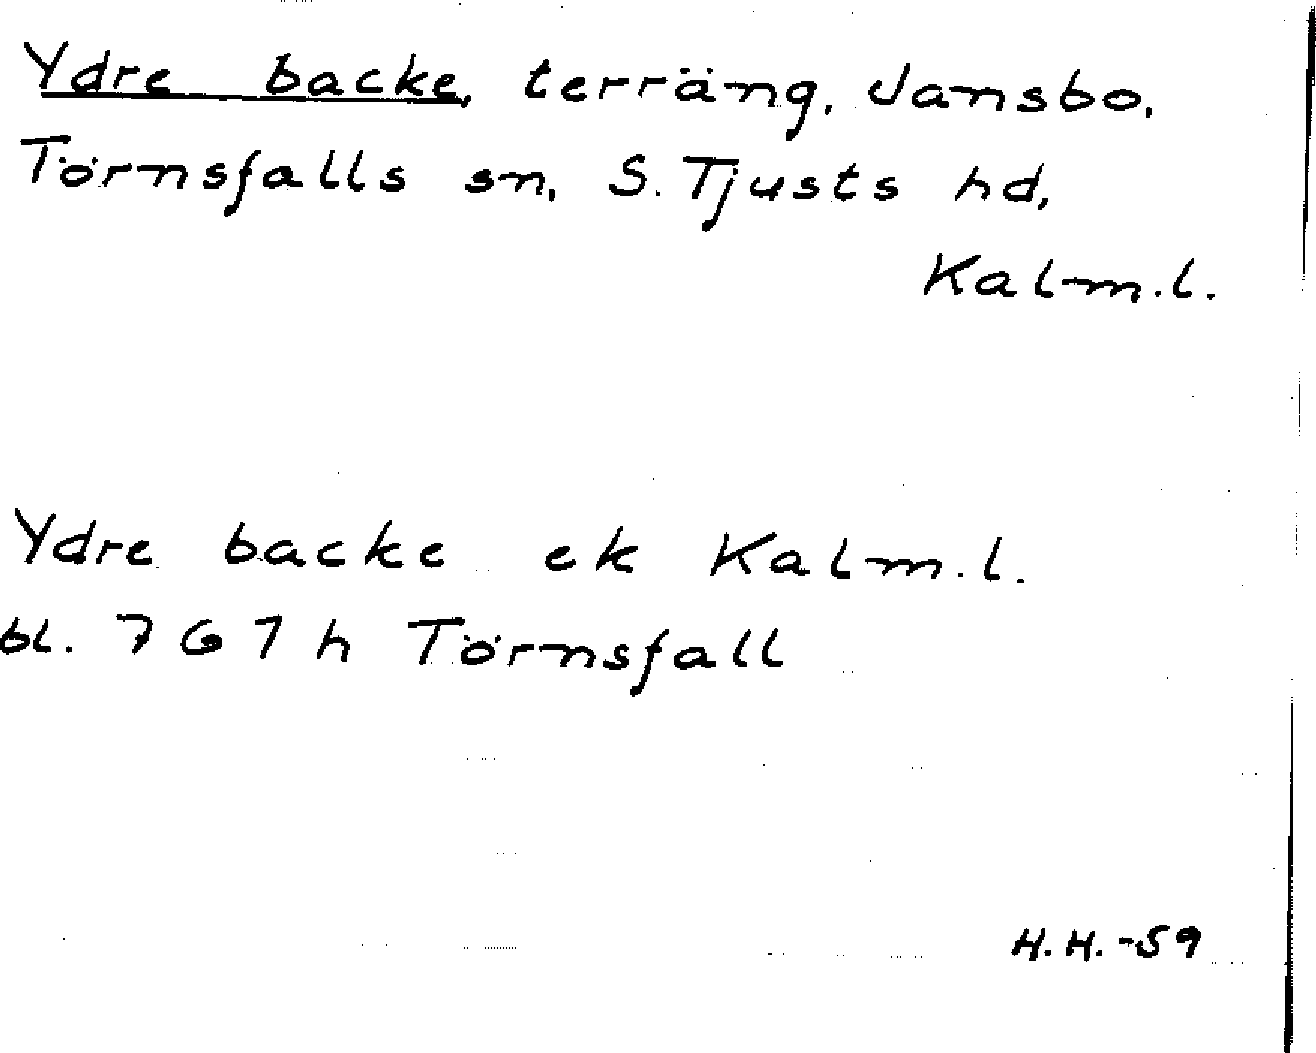 Ydre backe, terräng, Jansbo,
Törnsfalls sn, S. Tjusts hd,
Kalm.l.
Ydre backe ek Kalm.l.
bl. 7 G 7 h Törnsfall
H.H.-59